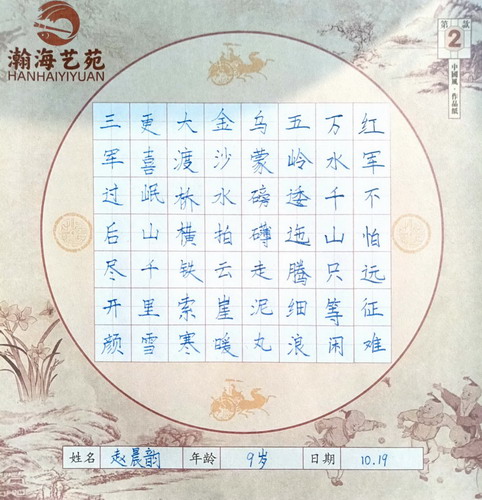 瀚海艺苑
HANHAIYIYUAN
第2款
中國風·作品紙
红军不怕远征难
万水千山只等闲
五岭逶迤腾细浪
乌蒙磅礴走泥丸
金沙水拍云崖暖
大渡桥横铁索寒
更喜岷山千里雪
三军过后尽开颜
姓名 赵晨韵 年龄 9岁 日期 10.19